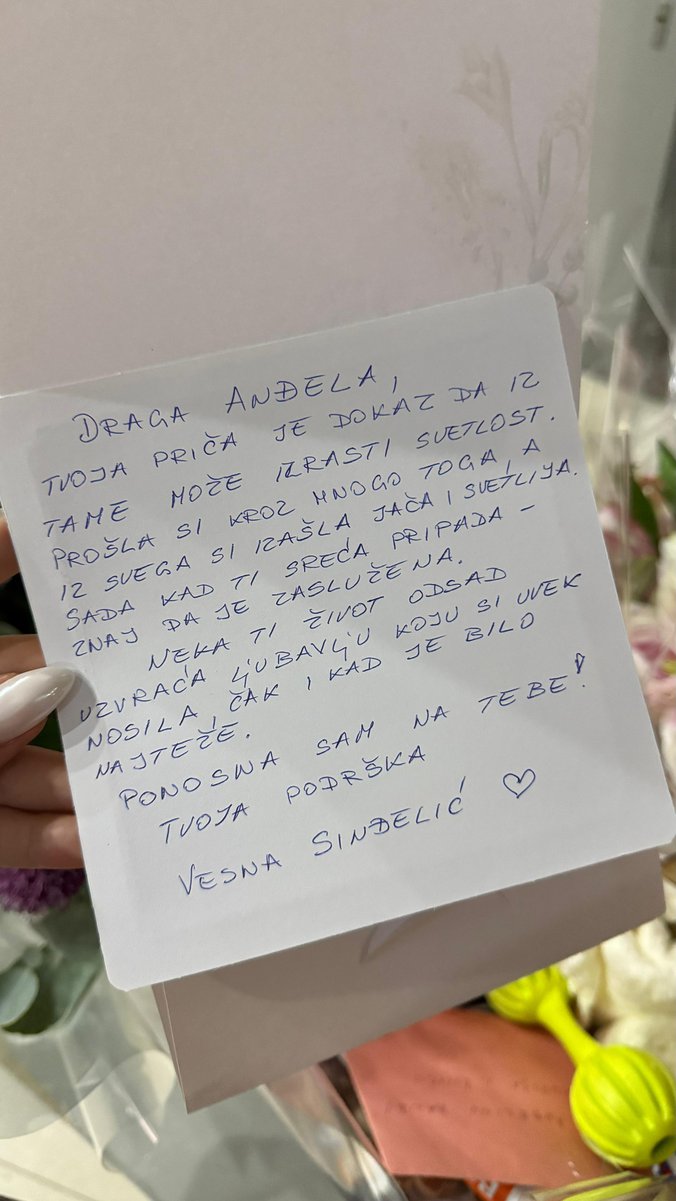 DRAGA ANĐELA,
TVOJA PRIČA JE DOKAZ DA IZ
TAME MOŽE IZRASTI SVETLOST.
PROŠLA SI KROZ MNOGO TOGA, A
IZ SVEGA SI IZAŠLA JAČA I SVETLIJA.
SADA KAD TI SREĆA PRIPADA –
ZNAJ DA JE ZASLUŽENA.
NEKA TI ŽIVOT ODSAD
UZVRAĆA LJUBAVLJU KOJU SI UVEK
NOSILA, ČAK I KAD JE BILO
NAJTEŽE.
PONOSNA SAM NA TEBE!
TVOJA PODRŠKA
VESNA SINĐELIĆ ♡